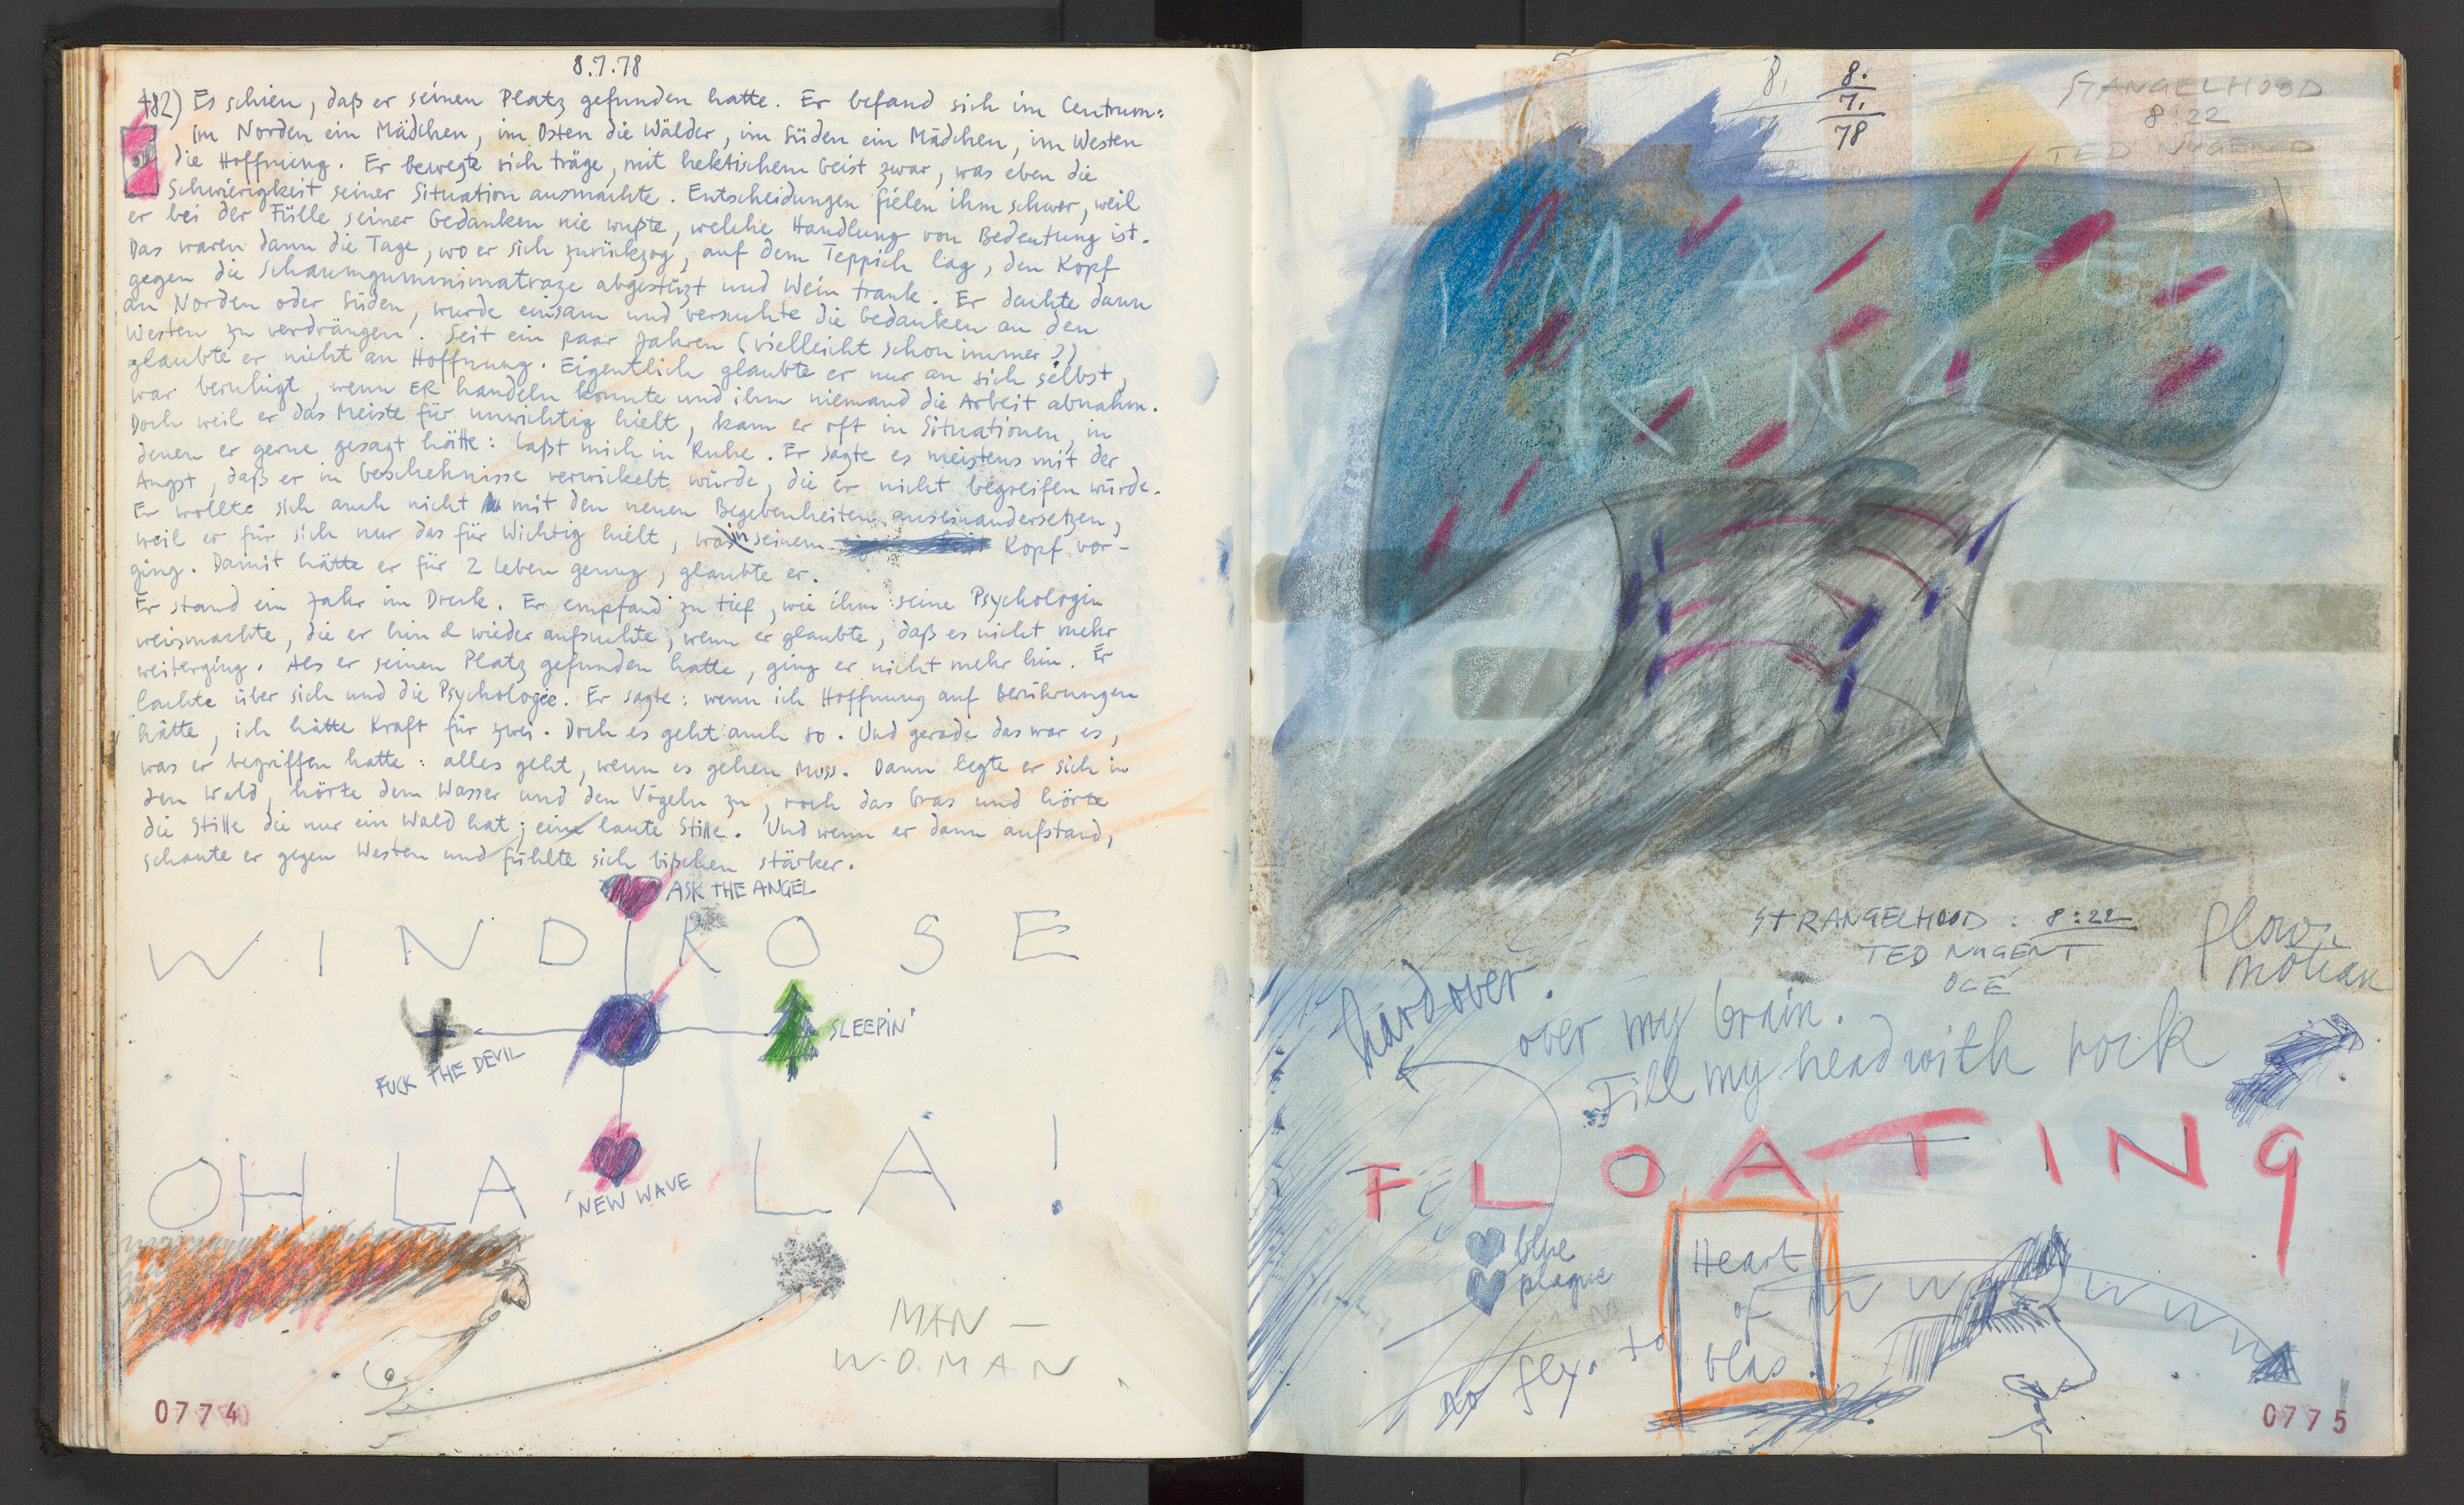 8.7.78
482) Es schien, daß er seinen Platz gefunden hatte. Er befand sich im Centrum:
im Norden ein Mädchen, im Osten die Wälder, im Süden ein Mädchen, im Westen
die Hoffnung. Er bewegte sich träge, mit hektischem Geist zwar, was eben die
Schwierigkeit seiner Situation ausmachte. Entscheidungen fielen ihm schwer, weil
er bei der Fülle seiner Gedanken nie wußte, welche Handlung von Bedeutung ist.
Das waren dann die Tage, wo er sich zurückzog, auf dem Teppich lag, den Kopf
gegen die Schaumgummimatraze abgestüzt und Wein trank. Er dachte dann
an Norden oder Süden, wurde einsam und versuchte die Gedanken an den
Westen zu verdrängen. Seit ein paar Jahren (vielleicht schon immer?)
glaubte er nicht an Hoffnung. Eigentlich glaubte er nur an sich selbst,
war beruhigt, wenn ER handeln konnte und ihm niemand die Arbeit abnahm.
Doch weil er das Meiste für unwichtig hielt, kam er oft in Situationen, in
denen er gerne gesagt hätte: laßt mich in Ruhe. Er sagte es meistens mit der
Angst, daß er in Geschehnisse verwickelt würde, die er nicht begreifen würde.
Er wollte sich auch nicht mit den neuen Begebenheiten auseinandersetzen,
weil er für sich nur das für Wichtig hielt, was in seinem Kopf vor-
ging. Damit hätte er für 2 Leben genug, glaubte er.
Er stand ein Jahr im Dreck. Er empfand zu tief, wie ihm seine Psychologin
weismachte, die er hin & wieder aufsuchte, wenn er glaubte, daß es nicht mehr
weiterging. Als er seinen Platz gefunden hatte, ging er nicht mehr hin. Er
lachte über sich und die Psychologie. Er sagte: wenn ich Hoffnung auf Berührungen
hätte, ich hätte Kraft für zwei. Doch es geht auch so. Und gerade das war es,
was er begriffen hatte: alles geht, wenn es gehen muss. Dann legte er sich in
den Wald, hörte dem Wasser und den Vögeln zu, roch das Gras und hörte
die Stille die nur ein Wald hat; eine laute Stille. Und wenn er dann aufstand,
schaute er gegen Westen und fühlte sich bißchen stärker.
ASK THE ANGEL
WINDROSE
SLEEPIN'
FUCK THE DEVIL
OH LA LA!
NEW WAVE
MAN –
WOMAN
0774
8.
8.
7.
78
STANGELHOOD
8:22
TED NUGEND
KING
STRANGELHOOD: 8:22
TED NUGENT
OGÉ
flow
motion
hardover.
over my brain.
Fill my head with rock
FLOATING
blue
plaque
Heart
of
glas.
no fly. to
W W W W W
0775